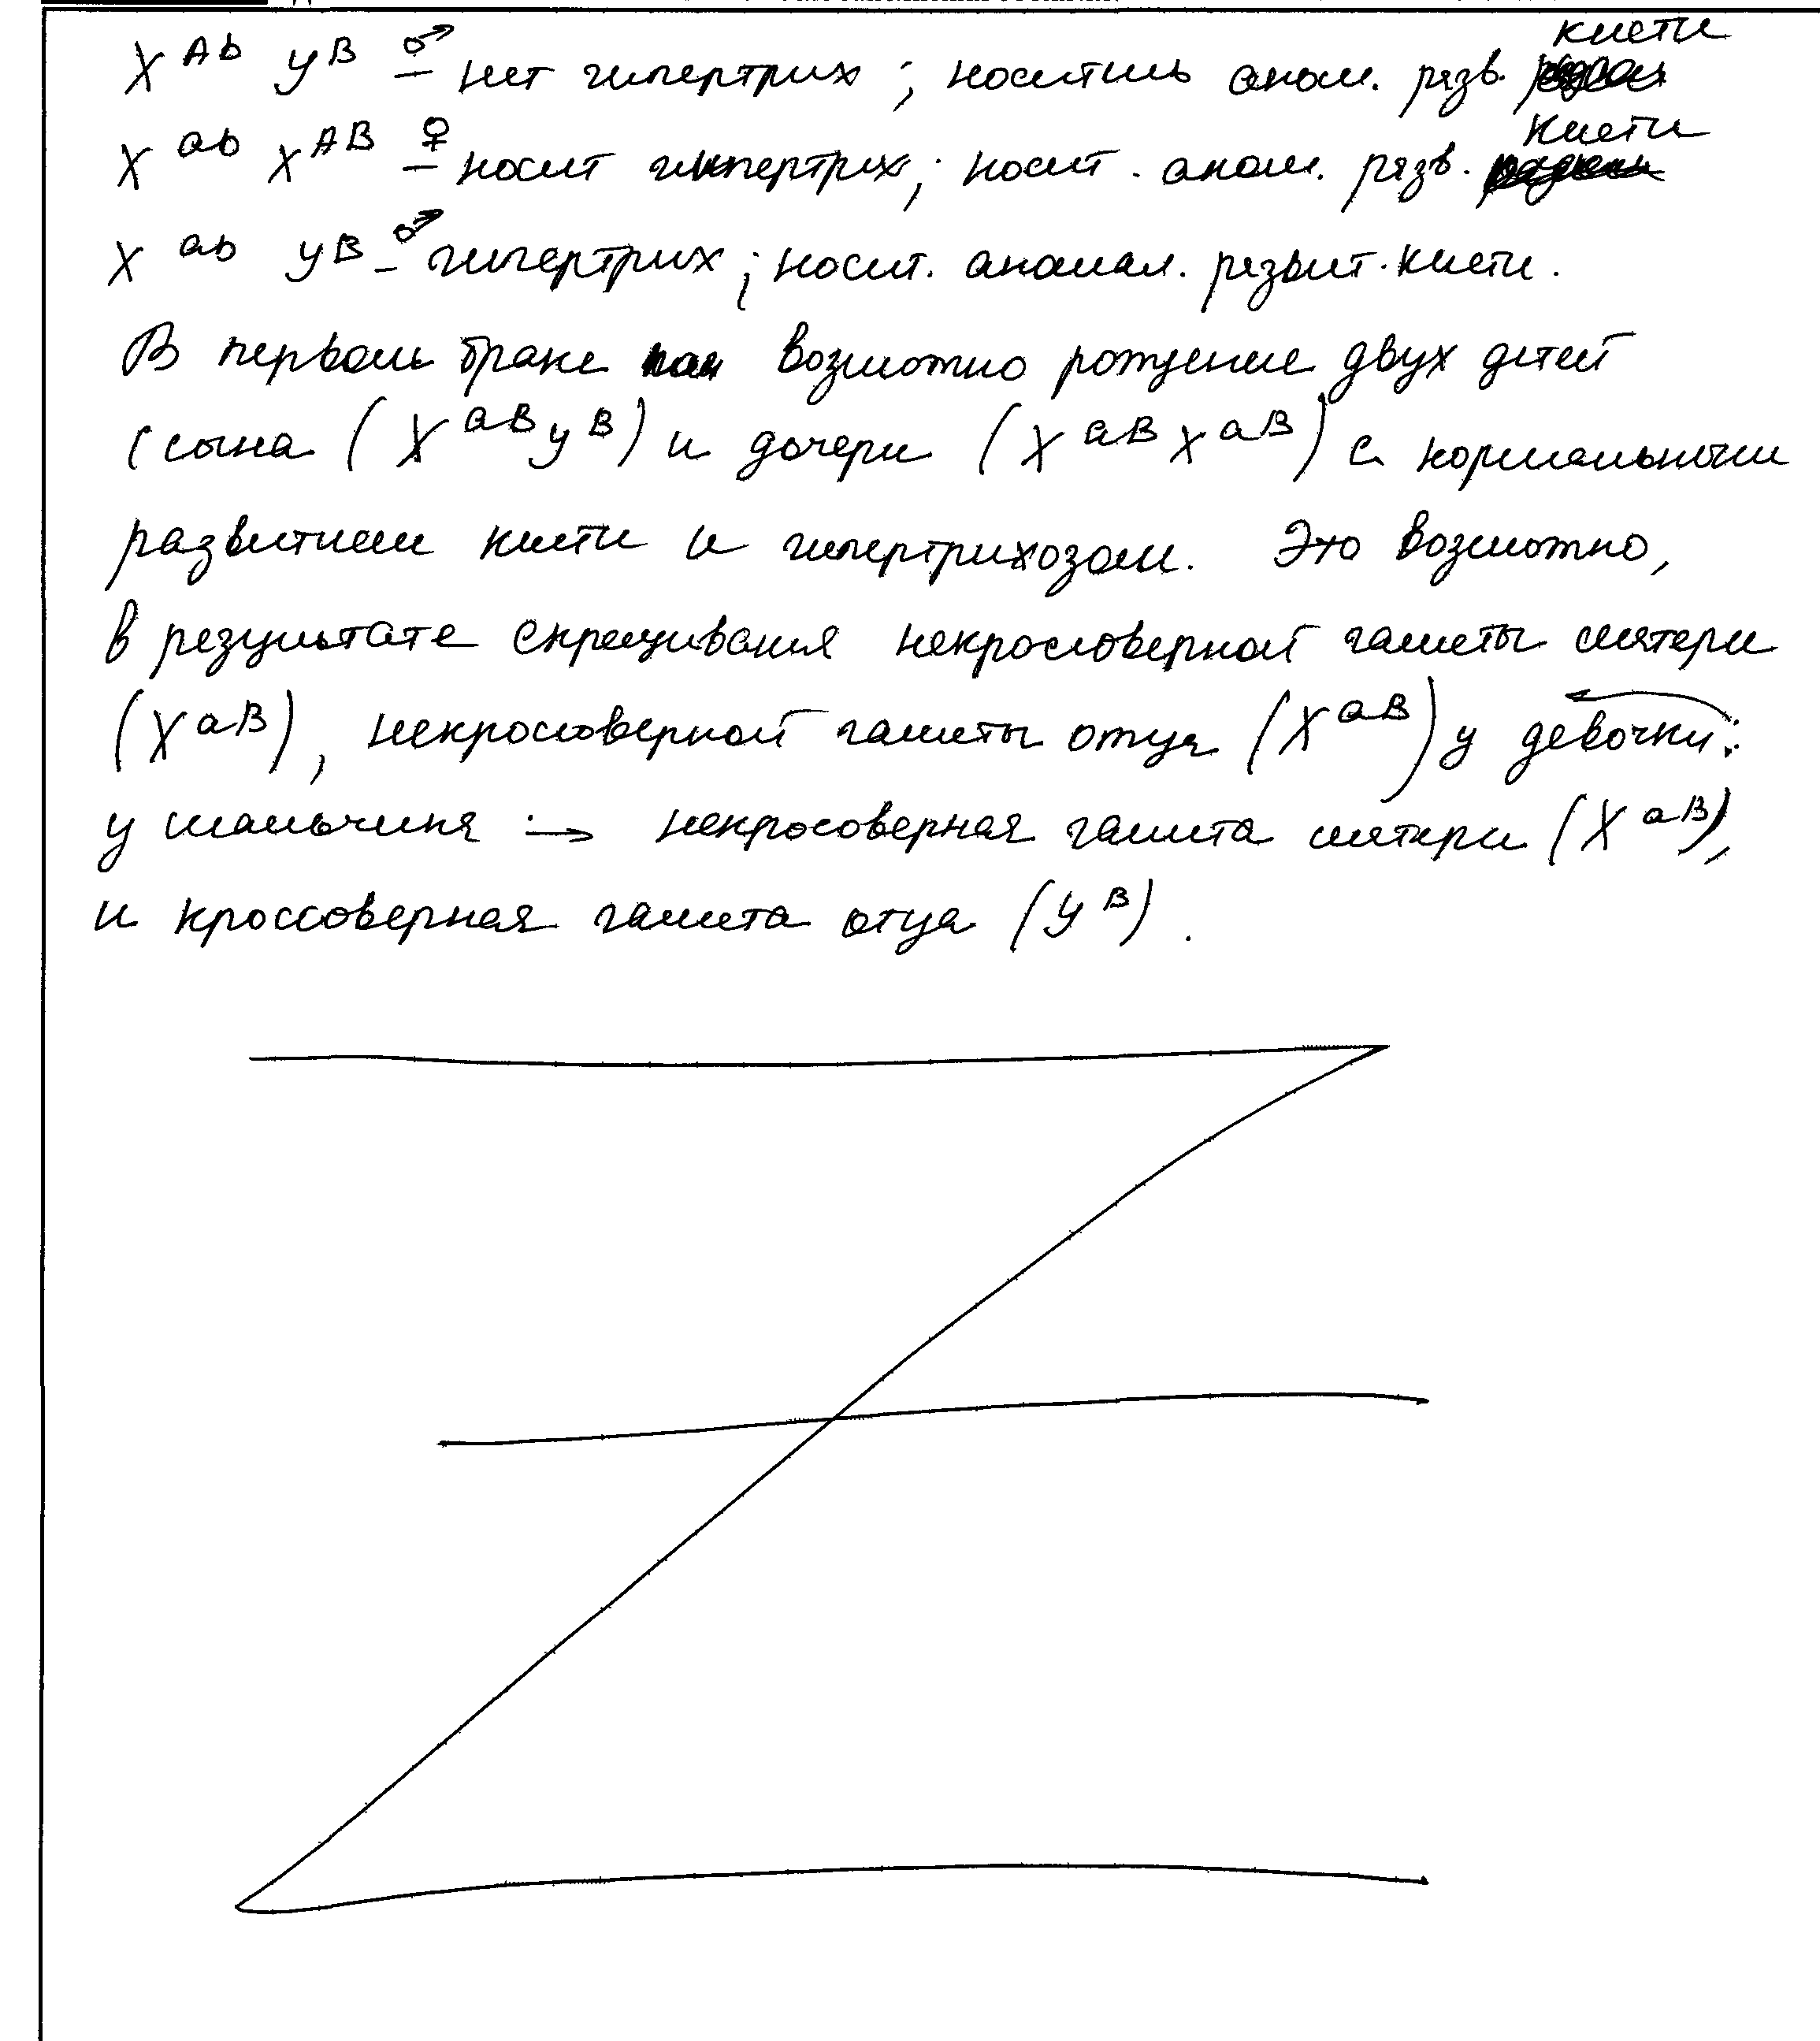 X^Ab У^B ♂ – нет гипертрих; носитель аном. разв. кисти
X^ab X^AB ♀ – носит гипертрих; носит. аном. разв. кисти
X^ab У^B – ♂ гипертрих; носит. аномал. развит. кисти.
В первом браке возможно рождение двух детей
(сына (X^aB У^B) и дочери (X^aB X^aB) с нормальным
развитием кисти и гипертрихозом. Это возможно,
в результате скрещивания некроссоверной гаметы матери
(X^aB), некроссоверной гаметы отца (X^aB) у девочки:
у мальчика :→ некросоверная гамета матери (X^aB),
и кроссоверная гамета отца (У^B).